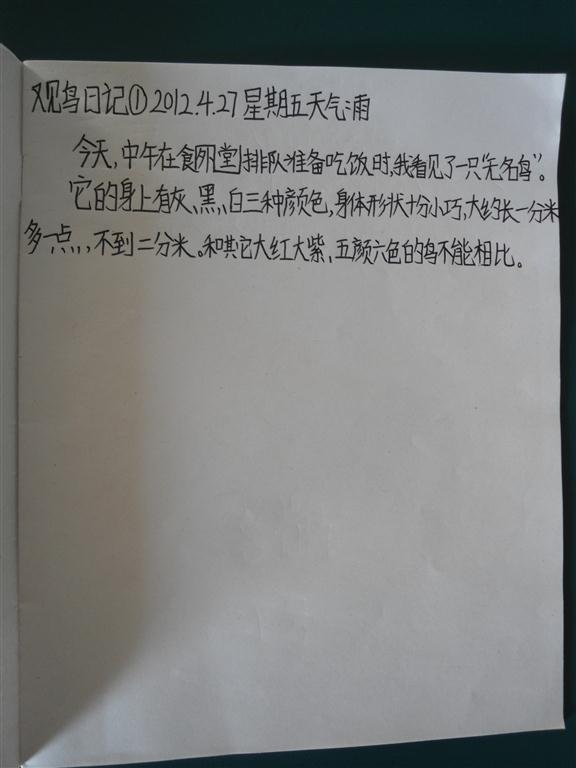 观鸟日记①2012.4.27星期五天气:雨
今天,中午在食堂排队准备吃饭时,我看见了一只“无名鸟”。
它的身上有灰、黑、白三种颜色,身体形状十分小巧,大约长一分米
多一点,,不到二分米。和其它大红大紫、五颜六色的鸟不能相比。